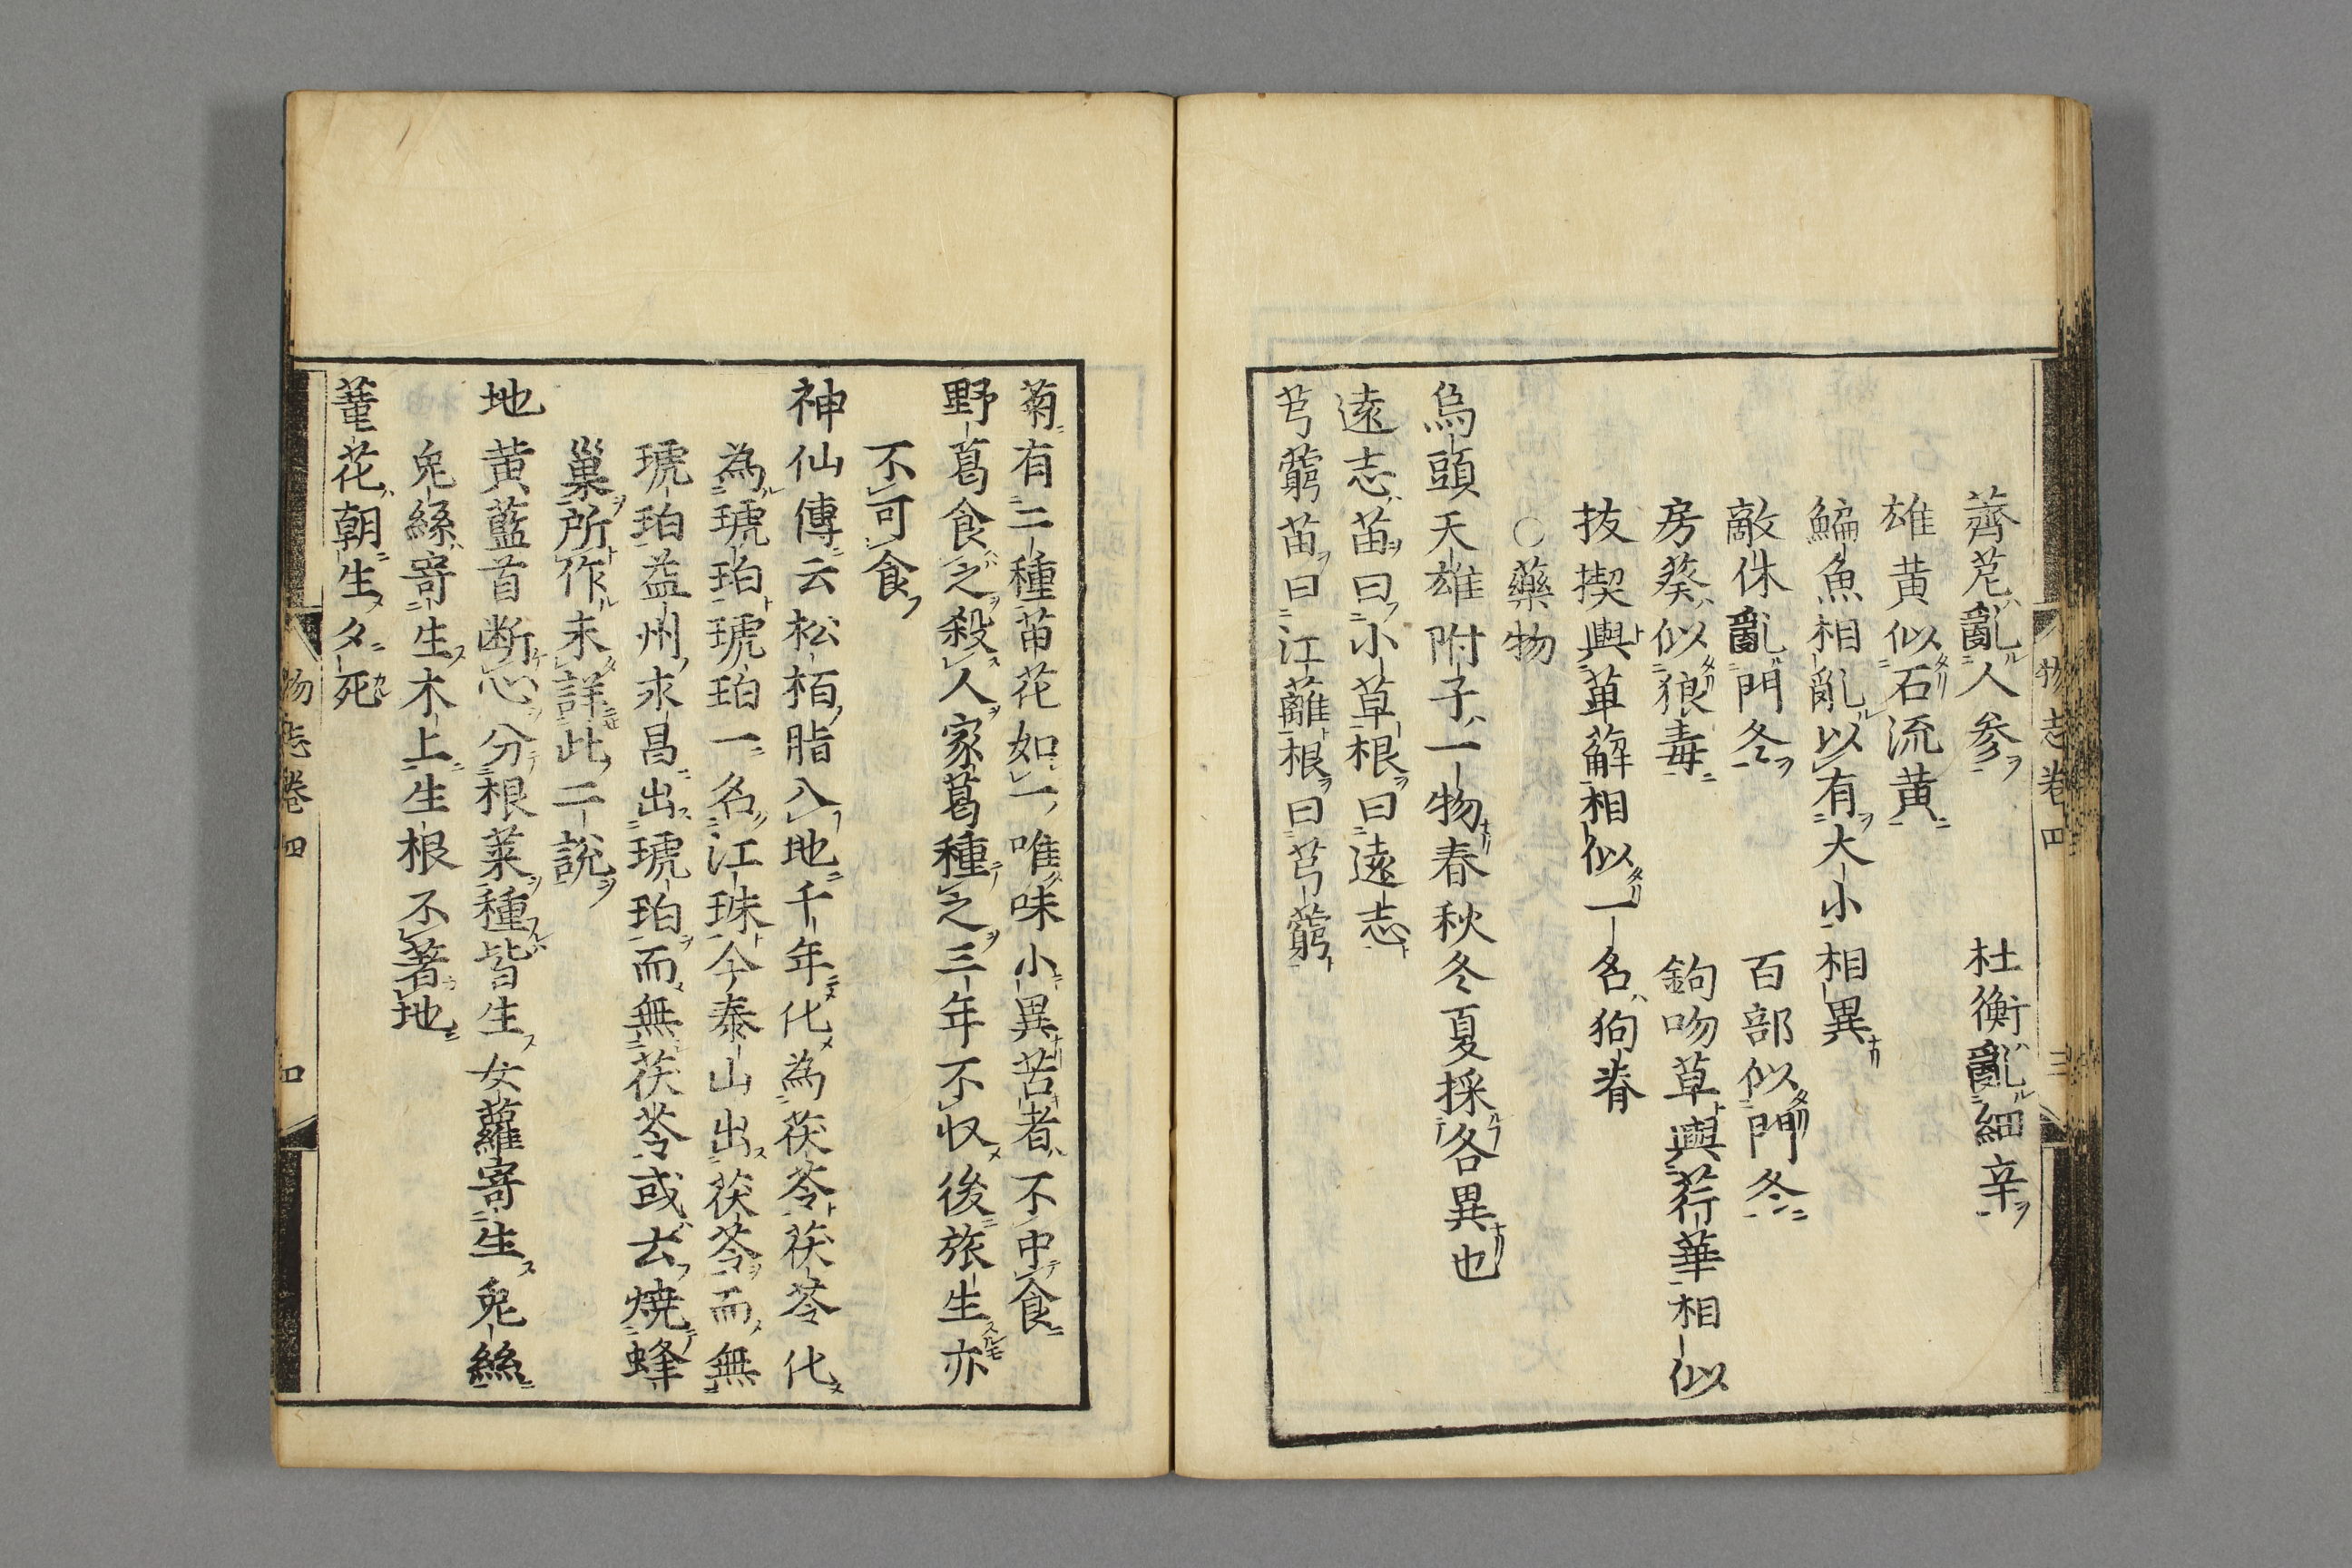 薺苨亂人参　杜衡亂細辛
雄黄似石流黄
鯿魚相亂以有大小相異
敵休亂門冬　百部似門冬
房葵似狼毒　鉤吻草與荇華相似
抜揳與萆薢相似一名狗脊
〇藥物
烏頭天雄附子一物春秋冬夏採各異也
遠志苗曰小草根曰遠志
芎藭苗曰江蘺根曰芎藭
物志巻四　三
菊有二種苗花如一唯味小異苦者不中食
野葛食之殺人家葛種之三年不収後旅生亦
不可食
神仙傳云松栢脂入地千年化為茯苓茯苓化
為琥珀琥珀一名江珠今泰山出茯苓而無
琥珀益州永昌出琥珀而無茯苓或云焼蜂
巢所作未詳此二說
地黄藍首断心分根菜種皆生女蘿寄生兎絲
兎絲寄生木上生根不著地
菫花朝生夕死
物志巻四